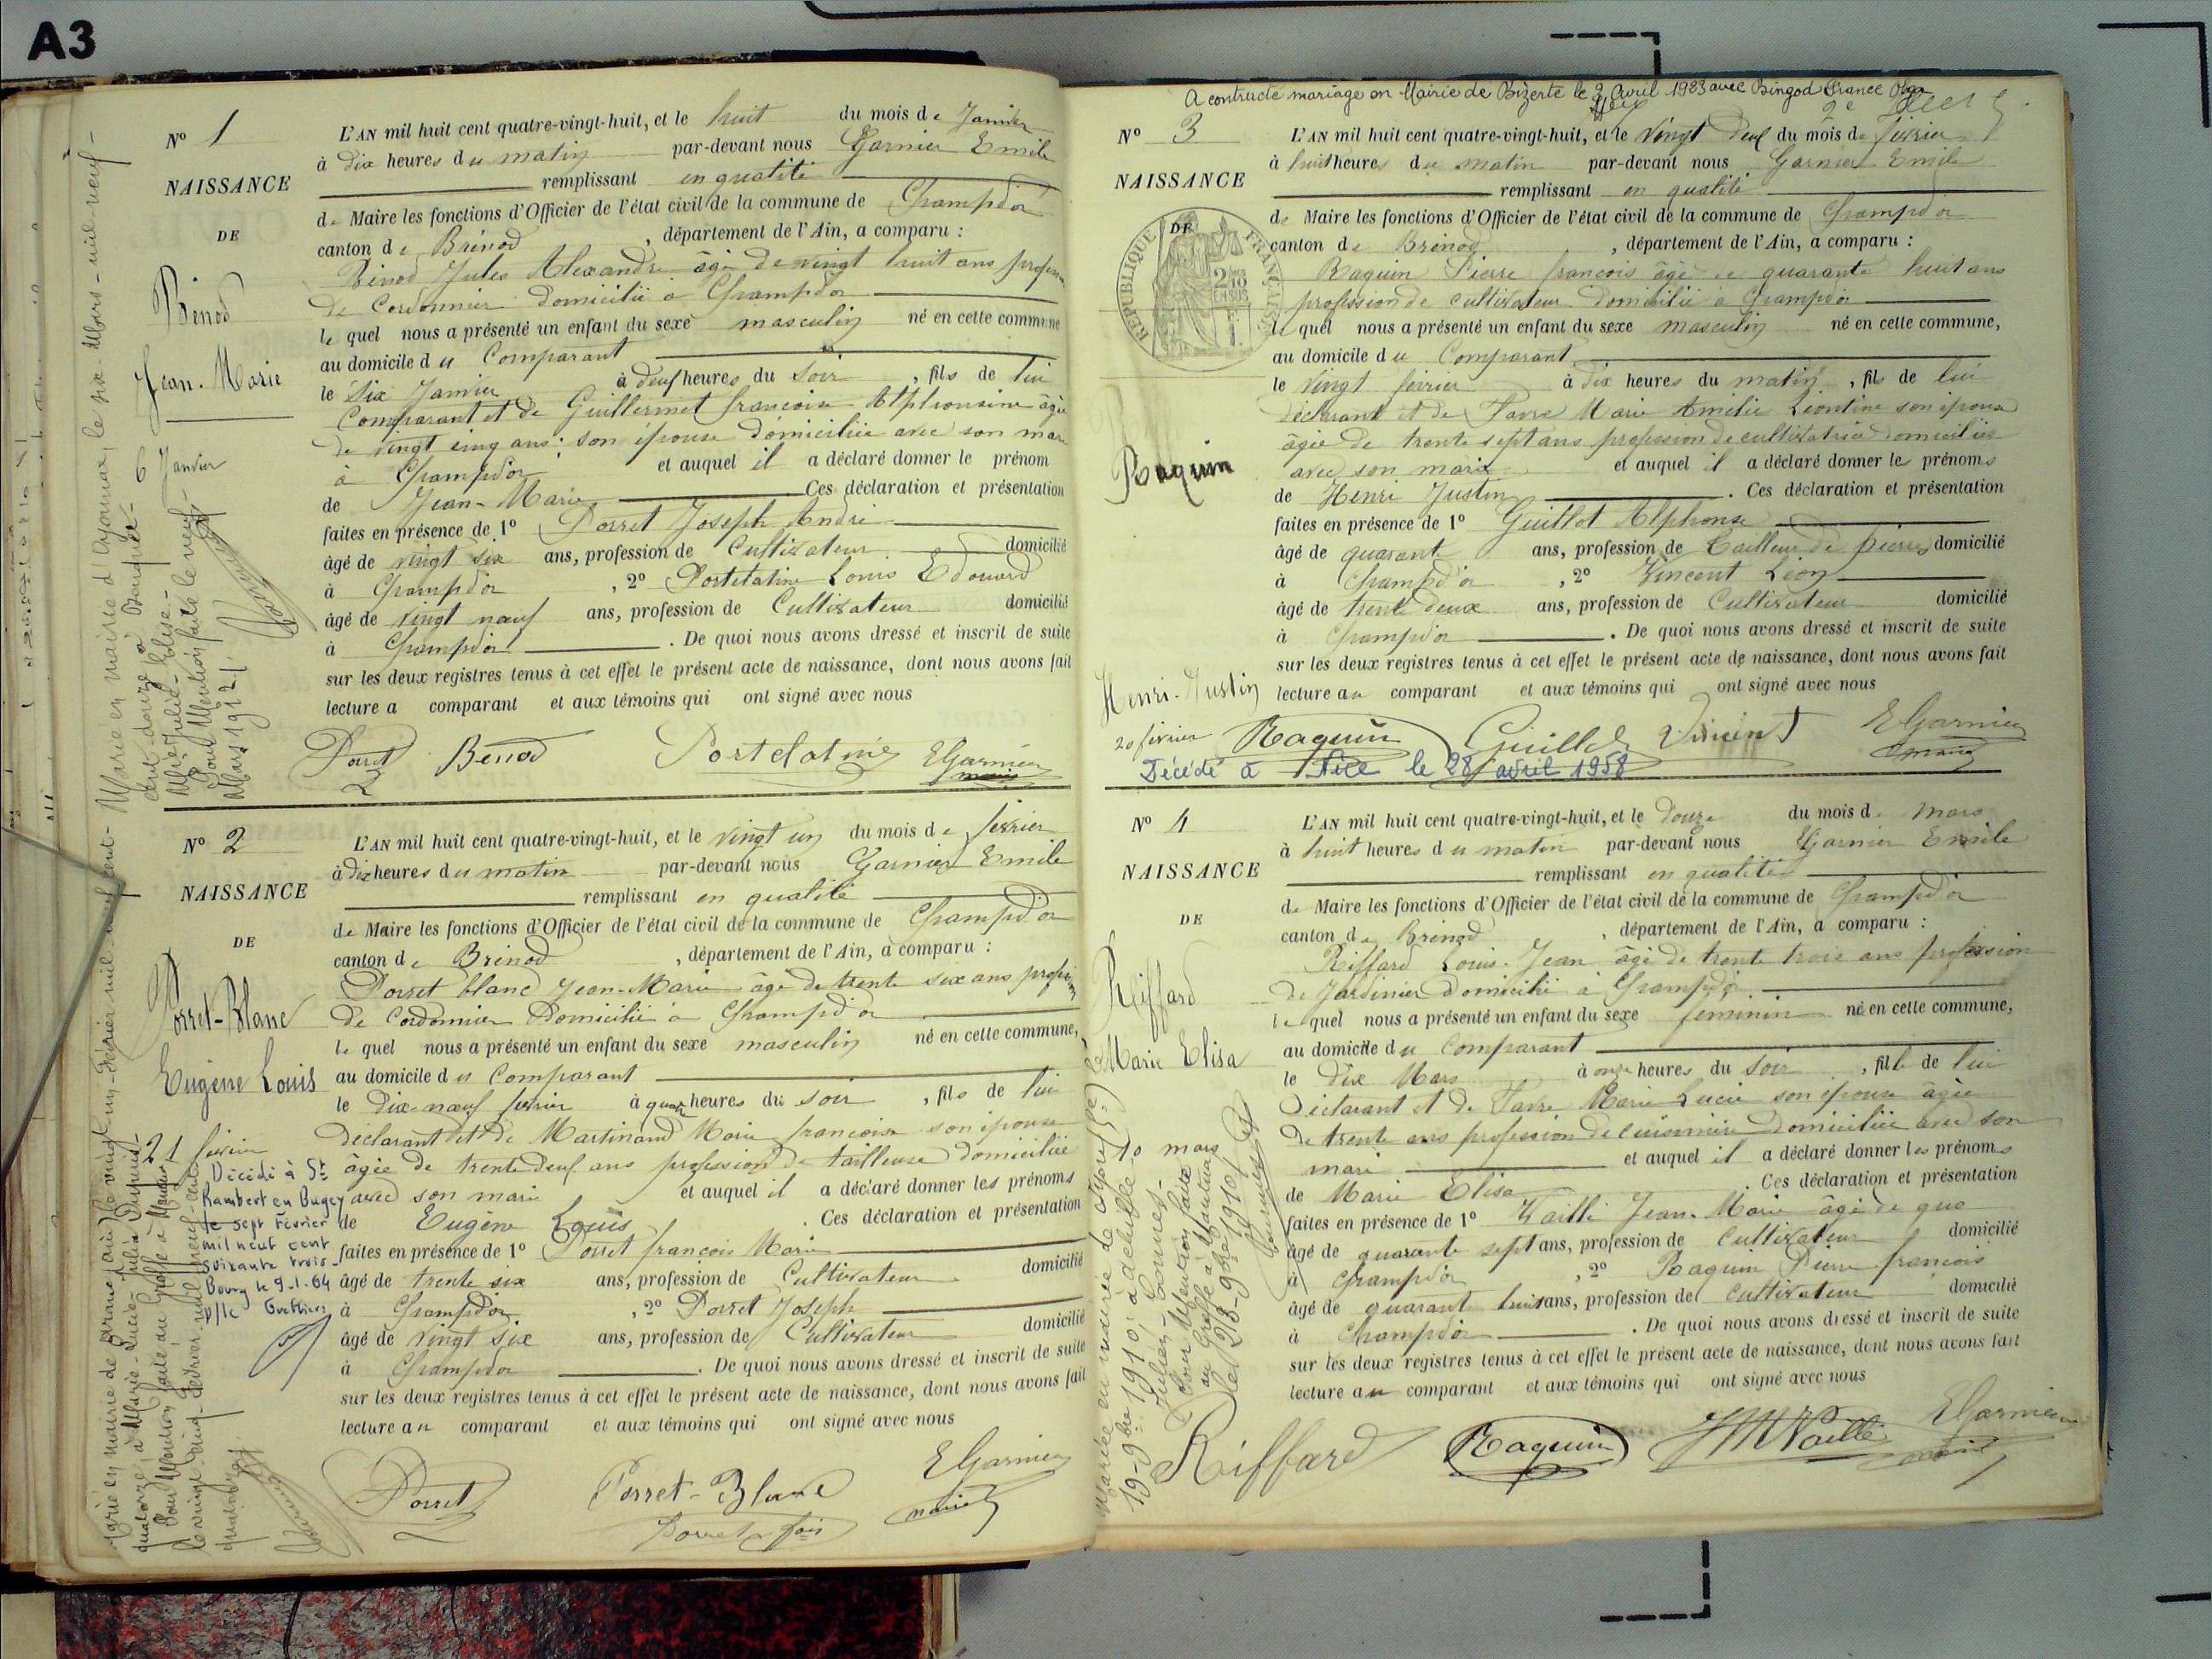 A3
N° 1
NAISSANCE
DE
Bénod
Jean-Marie
6 Janvier
L'AN mil huit cent quatre-vingt-huit, et le huit du mois de Janvier
à dix heures du matin par-devant nous Garnier Emile
remplissant en qualité
de Maire les fonctions d'Officier de l'état civil de la commune de Champdor
canton de Brénod, département de l'Ain, a comparu :
Bénod Jules Alexandre âgé de vingt huit ans profession
de Cordonnier domicilié à Champdor
lequel nous a présenté un enfant du sexe masculin né en cette commune
au domicile du Comparant
le Six Janvier à deux heures du soir, fils de lui
Comparant et de Guillermet françoise Alphonsine âgée
de vingt cinq ans ; son épouse domiciliée avec son mari
à Champdor et auquel il a déclaré donner le prénom
de Jean-Marie Ces déclaration et présentation
faites en présence de 1° Porret Joseph André
âgé de vingt six ans, profession de Cultivateur domicilié
à Champdor, 2° Portelatine Louis Edouard
âgé de vingt neuf ans, profession de Cultivateur domicilié
à Champdor. De quoi nous avons dressé et inscrit de suite
sur les deux registres tenus à cet effet le présent acte de naissance, dont nous avons fait
lecture a comparant et aux témoins qui ont signé avec nous
Porret Bénod Portelatine EGarnier
maire
Marié en mairie d'Oyonnax, le six-Mars-mil-neuf-
cent-douze à Bouquet-
Marie-Julie-Elise-
Pour Mention faite le neuf-
Mars 1912
N° 2
NAISSANCE
DE
Porret-Blanc
Eugène Louis
21 février
Décédé à St
Rambert en Bugey
le sept Février
mil neuf cent
soixante trois-
Bourg le 9-1-64
P/le Greffier
L'AN mil huit cent quatre-vingt-huit, et le vingt un du mois de février
à dix heures du matin par-devant nous Garnier Emile
remplissant en qualité
de Maire les fonctions d'Officier de l'état civil de la commune de Champdor
canton de Brénod, département de l'Ain, a comparu :
Porret blanc Jean-Marie âgé de trente six ans profession
de Cordonnier Domicilié à Champdor
lequel nous a présenté un enfant du sexe masculin né en cette commune,
au domicile du Comparant
le Dix-neuf février à quatre heures du soir, fils de lui
déclarant et de Martinand Marie françoise son épouse
âgée de trente deux ans profession de tailleuse domiciliée
avec son mari et auquel il a déclaré donner les prénoms
de Eugène Louis. Ces déclaration et présentation
faites en présence de 1° Porret françois Marie
âgé de trente six ans, profession de Cultivateur domicilié
à Champdor, 2° Porret Joseph
âgé de vingt six ans, profession de Cultivateur domicilié
à Champdor. De quoi nous avons dressé et inscrit de suite
sur les deux registres tenus à cet effet le présent acte de naissance, dont nous avons fait
lecture au comparant et aux témoins qui ont signé avec nous
Porret Porret-Blanc EGarnier
Porret fois maire
Marié en mairie de (Ain) le vingt-un-février-mil-neuf-cent-
quatorze, à Marie-Lucie-Julia
Pour Mention faite au Greffe à Nantua
le vingt-cinq-Février mil neuf-cent
quatorze
A contracté mariage en Mairie de Bizerte le 2 Avril 1923 avec Bingod France Olga
N° 3
NAISSANCE
DE
REPUBLIQUE FRANÇAISE
Raquin
Henri-Justin
20 février
L'AN mil huit cent quatre-vingt-huit, et le vingt deux du mois de février
à huit heures du matin par-devant nous Garnier Emile
remplissant en qualité
de Maire les fonctions d'Officier de l'état civil de la commune de Champdor
canton de Brénod, département de l'Ain, a comparu :
Raquin Pierre françois âgé de quarante huit ans
profession de cultivateur domicilié à Champdor
lequel nous a présenté un enfant du sexe masculin né en cette commune,
au domicile du Comparant
le vingt février à dix heures du matin, fils de lui
déclarant et de Favre Marie Amélie Léontine son épouse
âgée de trente sept ans profession de cultivatrice domiciliée
avec son mari et auquel il a déclaré donner les prénoms
de Henri Justin. Ces déclaration et présentation
faites en présence de 1° Guillot Alphonse
âgé de quarante ans, profession de tailleur de pierres domicilié
à Champdor, 2° Vincent Léon
âgé de trente deux ans, profession de Cultivateur domicilié
à Champdor. De quoi nous avons dressé et inscrit de suite
sur les deux registres tenus à cet effet le présent acte de naissance, dont nous avons fait
lecture au comparant et aux témoins qui ont signé avec nous
Raquin Guillot Vincent EGarnier
maire
Décédé à Nice le 28 avril 1958
N° 4
NAISSANCE
DE
Riffard
Marie Elisa
10 mars
L'AN mil huit cent quatre-vingt-huit, et le Douze du mois de mars
à huit heures du matin par-devant nous Garnier Emile
remplissant en qualité
de Maire les fonctions d'Officier de l'état civil de la commune de Champdor
canton de Brénod, département de l'Ain, a comparu :
Riffard Louis-Jean âgé de trente trois ans profession
de Jardinier domicilié à Champdor
lequel nous a présenté un enfant du sexe féminin né en cette commune,
au domicile du Comparant
le dix Mars à onze heures du soir, fille de lui
Déclarant et de Favre Marie Lucie son épouse âgée
de trente ans profession de cuisinière domiciliée avec son
mari et auquel il a déclaré donner les prénoms
de Marie Elisa. Ces déclaration et présentation
faites en présence de 1° Vaillé Jean-Marie âgé de qua
âgé de quarante sept ans, profession de Cultivateur domicilié
à Champdor, 2° Raquin Pierre françois
âgé de quarante huit ans, profession de cultivateur domicilié
à Champdor. De quoi nous avons dressé et inscrit de suite
sur les deux registres tenus à cet effet le présent acte de naissance, dont nous avons fait
lecture au comparant et aux témoins qui ont signé avec nous
Riffard Raquin JMVaillé EGarnier
maire
Mariée en mairie de Lyon
19-9bre 1910, à
Pour Mention faite
au Greffe à Nantua
le 23-9bre 1910